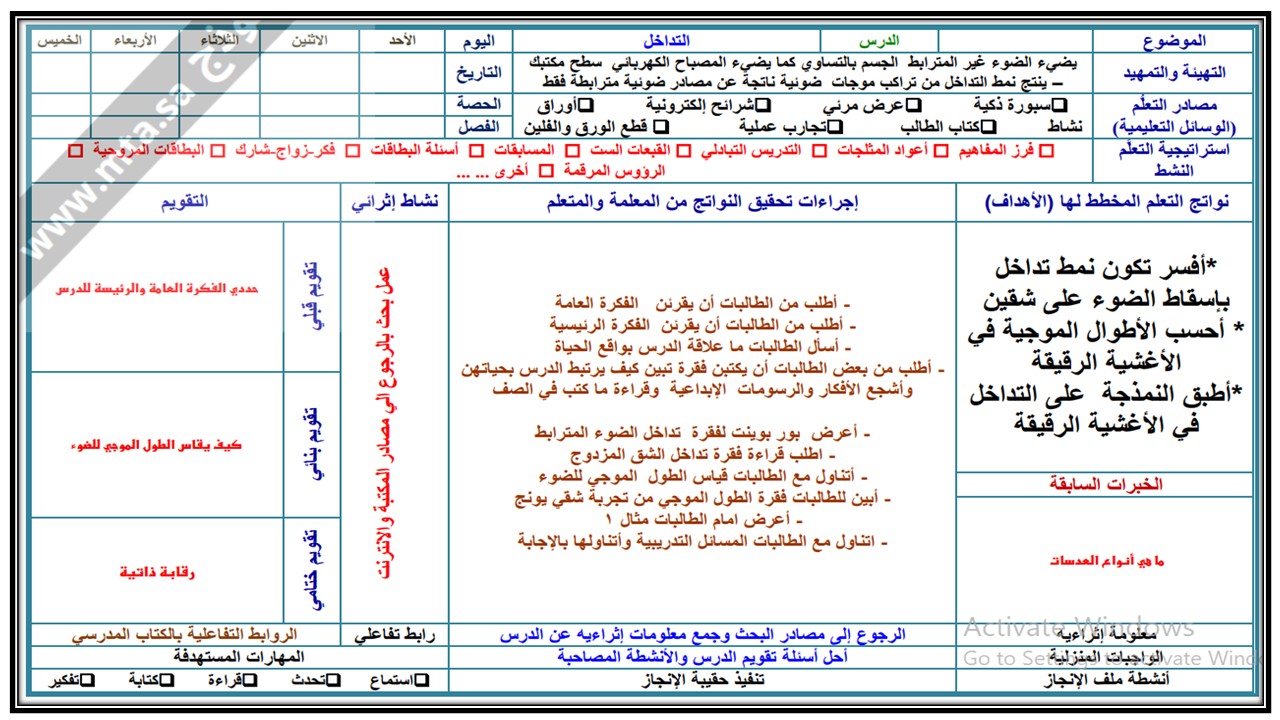 الموضوع الدرس التداخل اليوم الأحد الاثنين الثلاثاء الأربعاء الخميس
التهيئة والتمهيد
يضيء الضوء غير المترابط الجسم بالتساوي كما يضيء المصباح الكهربائي سطح مكتبك
– ينتج نمط التداخل من تراكب موجات ضوئية ناتجة عن مصادر ضوئية مترابطة فقط
التاريخ
مصادر التعلّم
(الوسائل التعليمية)
❑سبورة ذكية ❑عرض مرئي ❑شرائح إلكترونية ❑أوراق
نشاط ❑كتاب الطالب ❑تجارب عملية ❑ قطع الورق والفلين
الحصة
الفصل
استراتيجية التعلّم
النشط
□ فرز المفاهيم □ أعواد المثلجات □ التدريس التبادلي □ القبعات الست □ المسابقات □ أسئلة البطاقات □ فكر-زواج-شارك □ البطاقات المروحية □
الرؤوس المرقمة □ أخرى ... ...
نواتج التعلم المخطط لها (الأهداف) إجراءات تحقيق النواتج من المعلمة والمتعلم نشاط إثرائي التقويم
*أفسر تكون نمط تداخل
بإسقاط الضوء على شقين
* أحسب الأطوال الموجية في
الأغشية الرقيقة
*أطبق النمذجة على التداخل
في الأغشية الرقيقة
الخبرات السابقة
ما هي أنواع العدسات
- أطلب من الطالبات أن يقرئن الفكرة العامة
- أطلب من الطالبات أن يقرئن الفكرة الرئيسية
- أسأل الطالبات ما علاقة الدرس بواقع الحياة
- أطلب من بعض الطالبات أن يكتبن فقرة تبين كيف يرتبط الدرس بحياتهن
وأشجع الأفكار والرسومات الإبداعية وقراءة ما كتب في الصف
- أعرض بور بوينت لفقرة تداخل الضوء المترابط
- اطلب قراءة فقرة تداخل الشق المزدوج
- أتناول مع الطالبات قياس الطول الموجي للضوء
- أبين للطالبات فقرة الطول الموجي من تجربة شقي يونج
- أعرض امام الطالبات مثال ١
- اتناول مع الطالبات المسائل التدريبية وأتناولها بالإجابة
عمل بحث بالرجوع الي مصادر المكتبة والانترنت
تقويم قبلي
حددي الفكرة العامة والرئيسة للدرس
تقويم بنائي
كيف يقاس الطول الموجي للضوء
تقويم ختامي
رقابة ذاتية
معلومة إثرائية الرجوع إلى مصادر البحث وجمع معلومات إثرائيه عن الدرس رابط تفاعلي الروابط التفاعلية بالكتاب المدرسي
الواجبات المنزلية أحل أسئلة تقويم الدرس والأنشطة المصاحبة المهارات المستهدفة
أنشطة ملف الإنجاز تنفيذ حقيبة الإنجاز ❑استماع ❑تحدث ❑قراءة ❑كتابة ❑تفكير
www.mta.sa
Activate Windows
Go to Settings to activate Wind